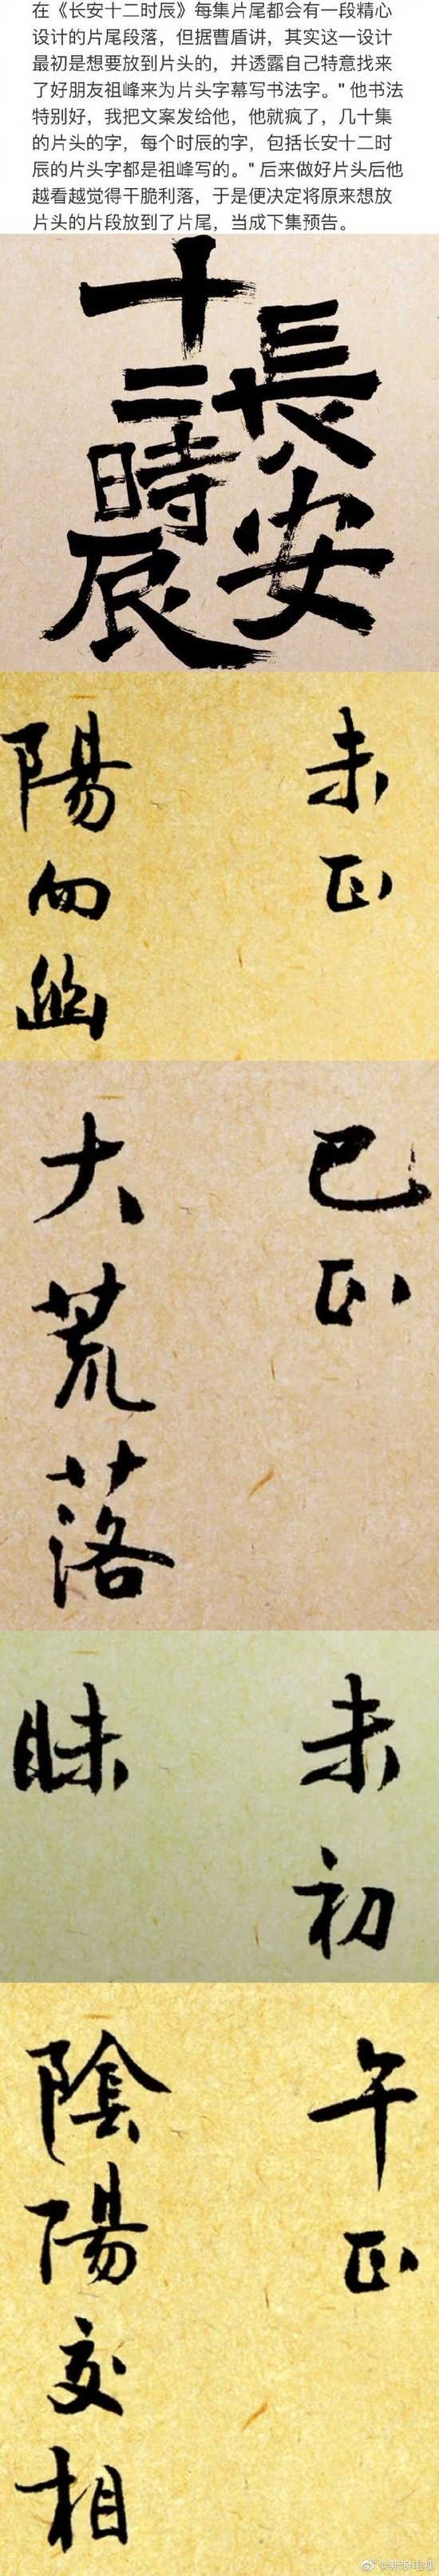 在《长安十二时辰》每集片尾都会有一段精心
设计的片尾段落，但据曹盾讲，其实这一设计
最初是想要放到片头的，并透露自己特意找来
了好朋友祖峰来为片头字幕写书法字。" 他书法
特别好，我把文案发给他，他就疯了，几十集
的片头的字，每个时辰的字，包括长安十二时
辰的片头字都是祖峰写的。" 后来做好片头后他
越看越觉得干脆利落，于是便决定将原来想放
片头的片段放到了片尾，当成下集预告。
長安
十二時辰
未正
陽向幽
巳正
大荒落
未初
昧
午正
陰陽交相
@新浪电视